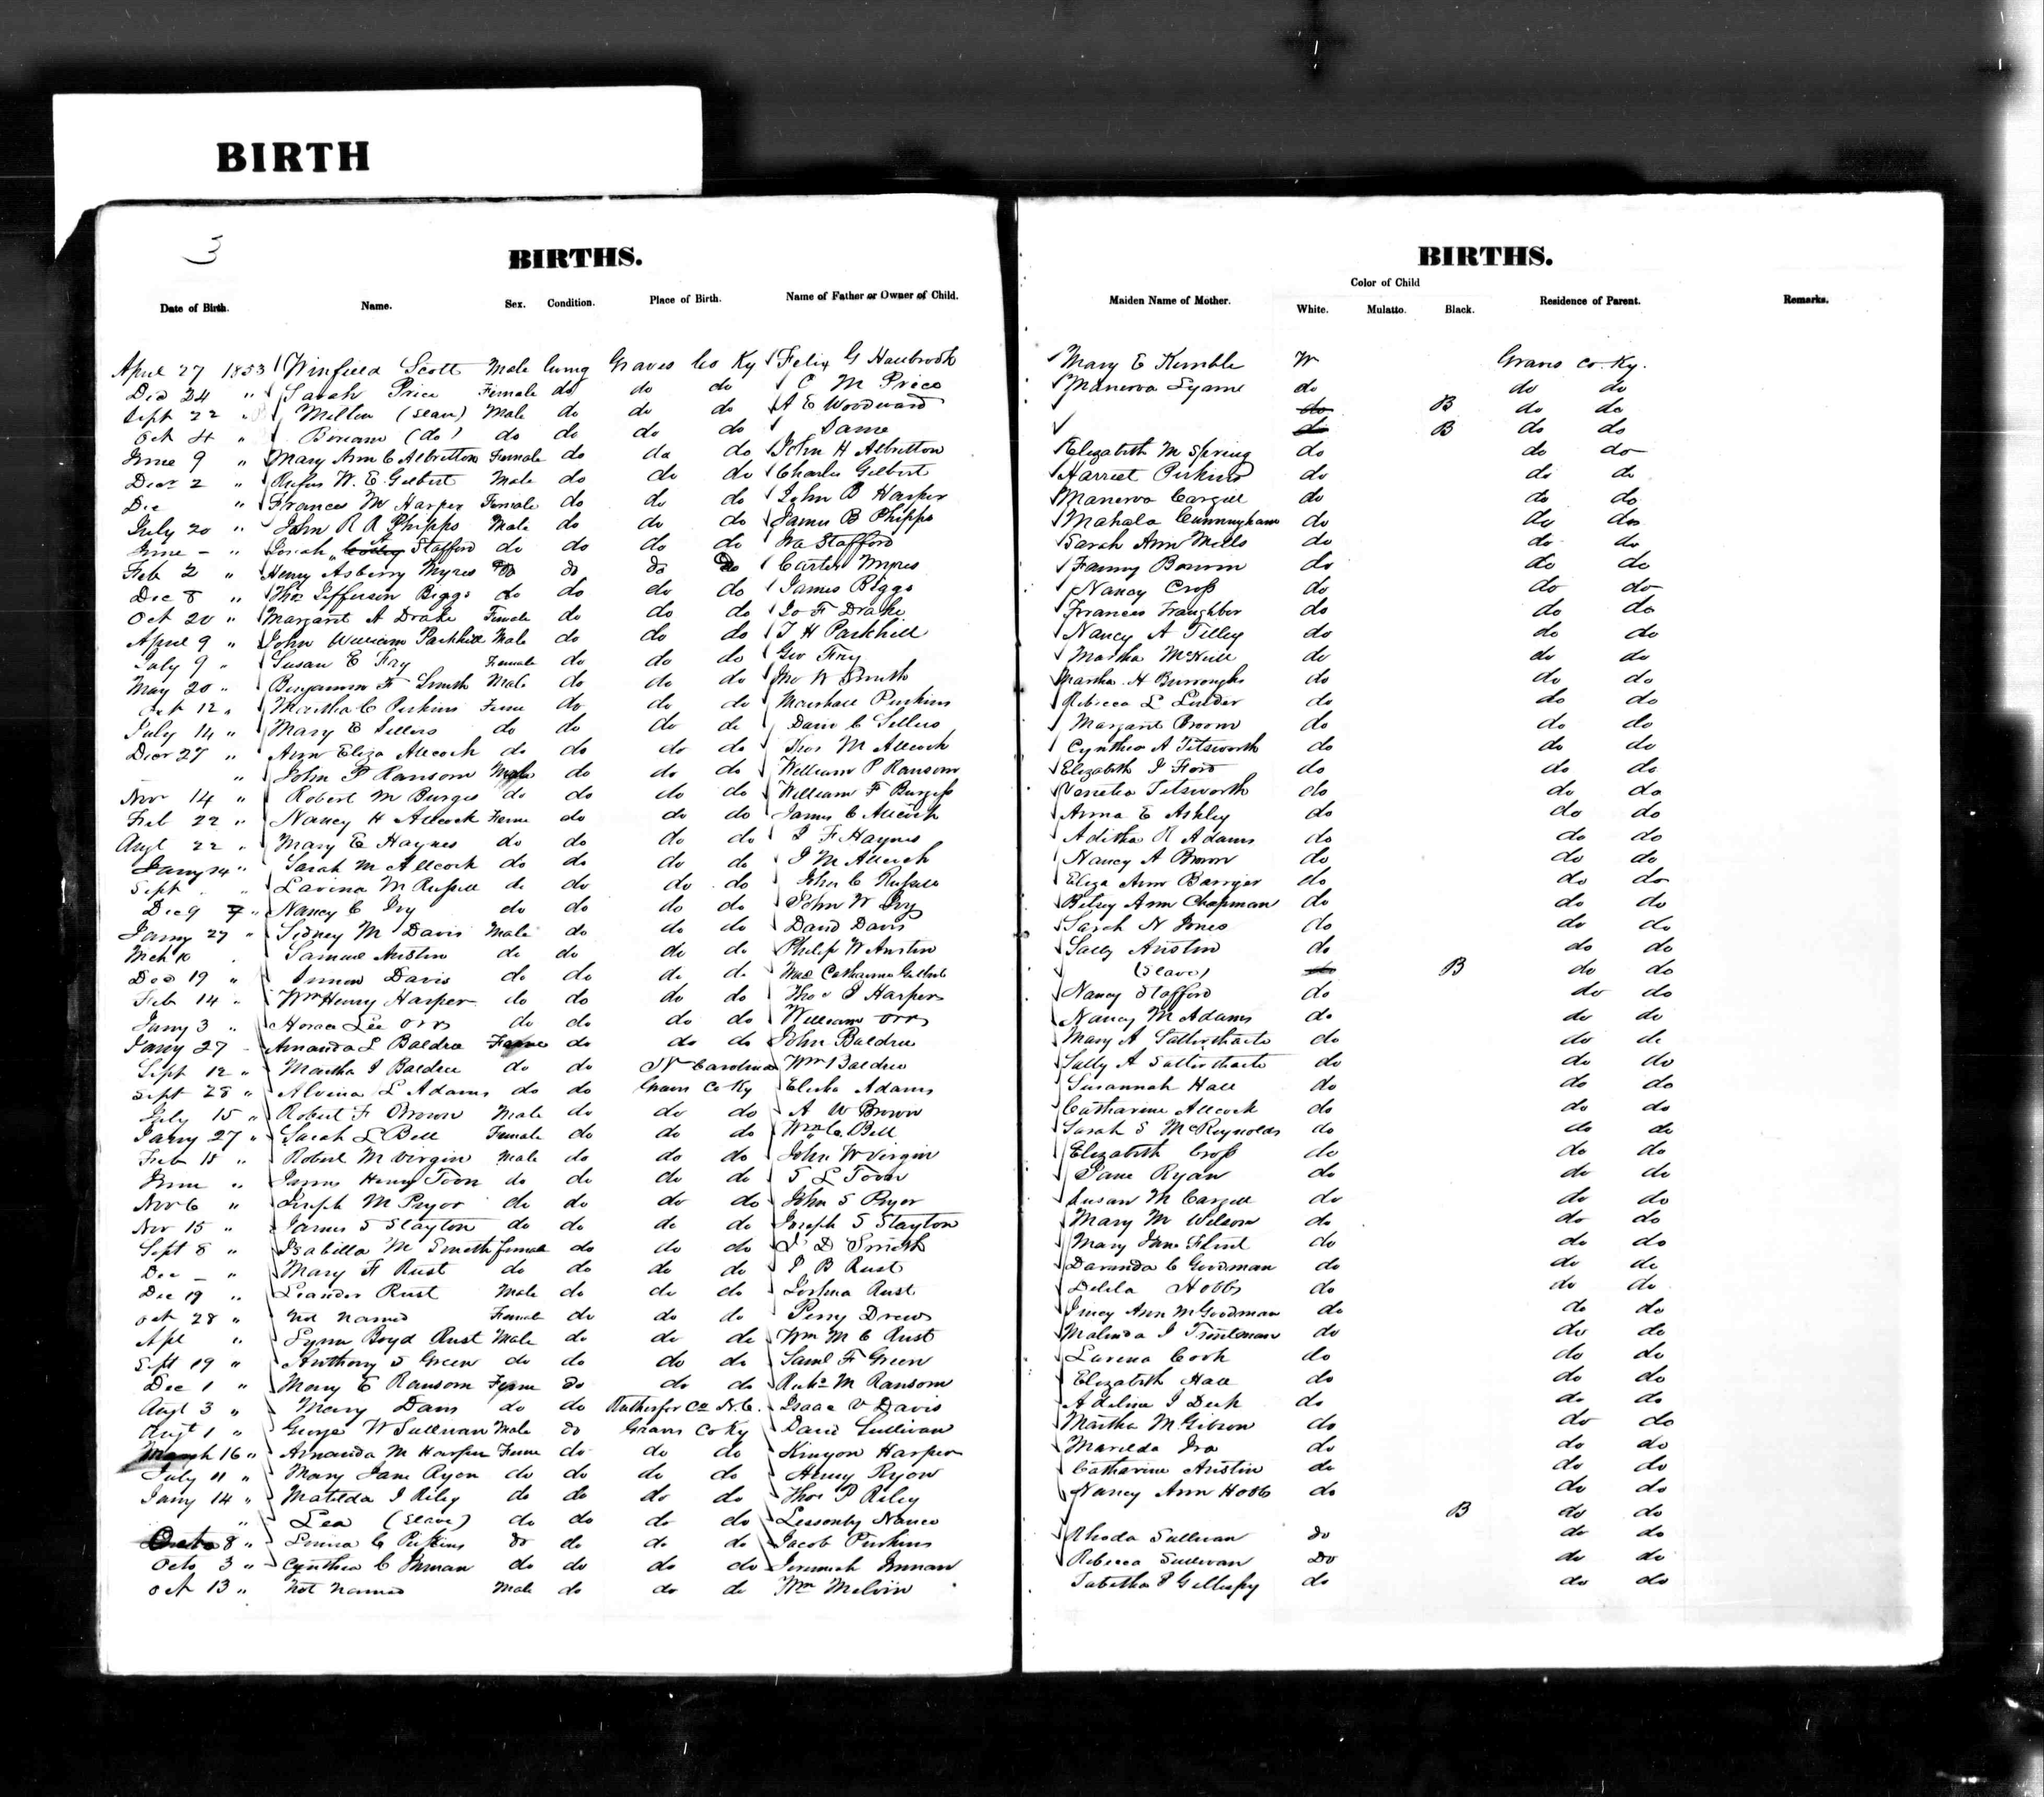 BIRTH
3
BIRTHS.
Date of Birth. Name. Sex. Condition. Place of Birth. Name of Father or Owner of Child.
April 27 1853 Winfield Scott Male Living Graves Co Ky Felix G
Dec 24 " Sarah Price Female do do do C M Price
Sept 22 " Milton (Slave) Male do do do A E Woodward
Oct 4 " (do) do do do do Same
June 9 " Mary Ann C Albritton Female do do do John H Albritton
Decr 2 " Rufus W. E. Gilbert Male do do do Charles Gilbert
Dec " Frances M Harper Female do do do John B Harper
July 20 " John R A Phipps Male do do do James B Phipps
June - " Josiah A Stafford do do do do Ira Stafford
Feb 2 " Henry Asberry Myres do do do do Carter Myres
Dec 8 " Thos Jefferson Biggs do do do do James Biggs
Oct 20 " Margaret A Drake Female do do do Jo F Drake
April 9 " John William Parkhill Male do do do T H Parkhill
July 9 " Susan E Fry Female do do do Geo Fry
May 20 " Benjamin F Smith Male do do do Jno W Smith
Oct 12 " Martha C Perkins Feme do do do Marshall Perkins
July 14 " Mary E Sellers do do do do David C Sellers
Decr 27 " Ann Eliza Allcock do do do do Thos M Allcock
" John P Ransom Male do do do William P Ransom
Nov 14 " Robert M Burges do do do do William F Burgess
Feb 22 " Nancy H Allcock Feme do do do James C Allcock
Augt 22 " Mary E Haynes do do do do J F Haynes
Jany 14 " Sarah M Allcock do do do do J M Allcock
Sept " Lavina M Russell do do do do John C Russell
Dec 9 " Nancy C Ivy do do do do John W Ivy
Jany 27 " Sidney M Davis Male do do do David Davis
Mch 10 Samuel Austin do do do do Philip W Austin
Dec 19 " Davis do do do do Catharine
Feb 14 " Wm Henry Harper do do do do Thos J Harper
Jany 3 " Horace Lee Orr do do do do William Orr
Jany 27 " Amanda L Baldree Feme do do do John Baldree
Sept 12 " Martha J Baldree do do N Carolina Wm Baldree
Sept 28 " Alvina L Adams do do Graves Co Ky Elisha Adams
July 15 " Robert F Brown Male do do do A W Brown
Jany 27 " Sarah L Bell Female do do do Wm C. Bell
Feb 18 " Robert M Virgin Male do do do John W Virgin
June " James Henry Toon do do do do S L Toon
Nov 6 " Joseph M Pryor do do do do John S Pryor
Nov 15 " James S Slayton do do do do Joseph S Slayton
Sept 8 " Isabella M Smith female do do do J D Smith
Dec - " Mary F Rust do do do do J B Rust
Dec 19 " Leander Rust Male do do do Joshua Rust
Oct 28 " Not Named Female do do do Perry Drew
Apl " Lynn Boyd Rust Male do do do Wm M C Rust
Sept 19 " Anthony S Green do do do do Saml F Green
Dec 1 " Mary E Ransom Feme do do do M Ransom
Augt 3 " Mary Davis do do Rutherfor Co N.C. Isaac V Davis
Augt 1 " George W Sullivan Male do Graves Co Ky David Sullivan
March 16 " Amanda M Harper Feme do do do Kinyon Harper
July 11 " Mary Jane Ryon do do do do Henry Ryon
Jany 14 " Matilda J Riley do do do do Thos P Riley
" Lea (Slave) do do do do Nance
Octo 8 " C Perkins do do do do Jacob Perkins
Octo 3 " Cynthia C Inman do do do do Jeremiah Inman
Oct 13 " Not Named Male do do do Wm Melvin
BIRTHS.
Color of Child
Maiden Name of Mother. White. Mulatto. Black. Residence of Parent. Remarks.
Mary E Kimble W Graves Co. Ky.
Manerva do do do
do B do do
do B do do
Elizabeth M Spring do do do
Harriet Perkins do do do
Manerva Cargill do do do
Mahala Cunningham do do do
Sarah Ann Mills do do do
Fanny do do do
Nancy Cross do do do
Frances do do do
Nancy A Tilley do do do
Martha McNeill do do do
Martha H Burroughs do do do
Rebecca L Linder do do do
Margaret Broom do do do
Cynthia A Titsworth do do do
Elizabeth J Ford do do do
Venetia Titsworth do do do
Anna E Ashley do do do
Aditha R Adams do do do
Nancy A Brown do do do
Eliza Ann Barriger do do do
Betsy Ann Chapman do do do
Sarah N Jones do do do
Sally Austin do do do
(Slave) do B do do
Nancy Stafford do do do
Nancy M Adams do do do
Mary A do do do
Sally A do do do
Susannah Hall do do do
Catharine Allcock do do do
Sarah S McReynolds do do do
Elizabeth Cross do do do
Jane Ryan do do do
Susan M Cargill do do do
Mary M Wilson do do do
Mary Jane Flint do do do
Daranda C Goodman do do do
Delila Hobbs do do do
Ann M Goodman do do do
Malinda J Troutman do do do
Lurena Cook do do do
Elizabeth Hall do do do
Adeline J do do do
Martha M Gibson do do do
Marilda Ira do do do
Catharine Austin do do do
Nancy Ann Hobbs do do do
B do do
Rhoda Sullivan do do do
Rebecca Sullivan Do do do
Tabitha P Gillespy do do do